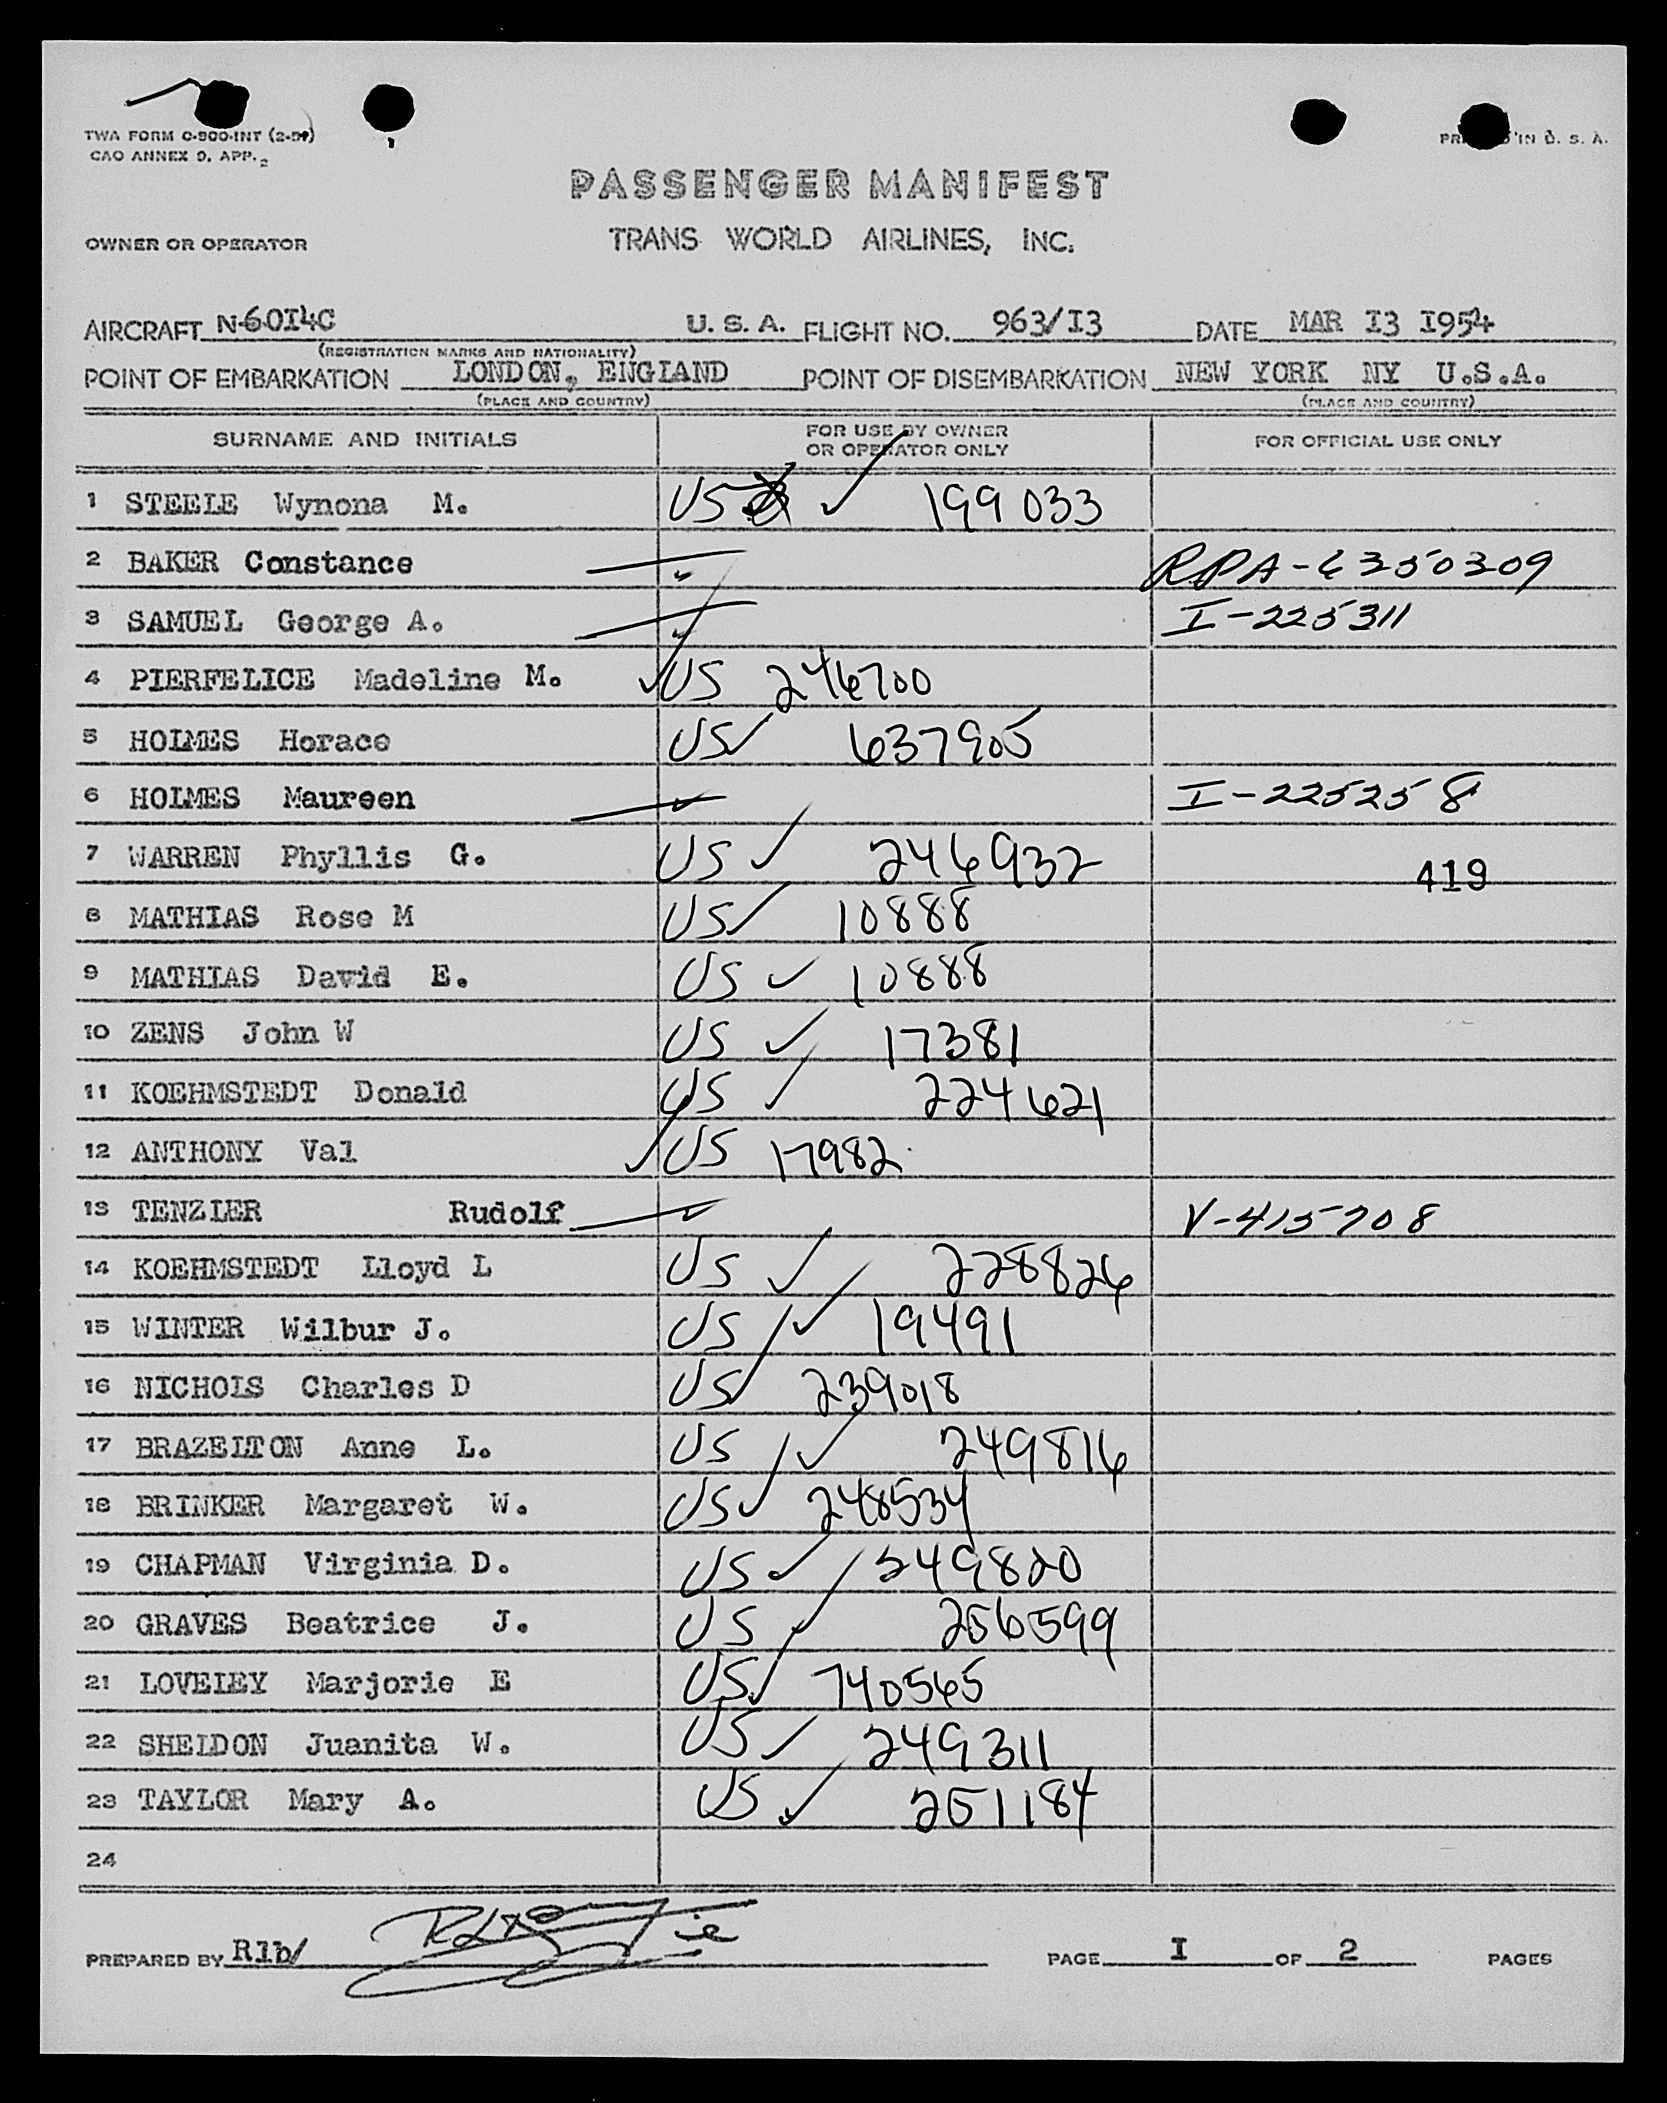 TWA FORM C-900-INT
CAO ANNEX 9, APP. 2
IN U. S. A.
PASSENGER MANIFEST
OWNER OR OPERATOR TRANS WORLD AIRLINES, INC.
AIRCRAFT N-6014C U. S. A. FLIGHT NO. 963/I3 DATE MAR I3 I954
(REGISTRATION MARKS AND NATIONALITY)
POINT OF EMBARKATION LONDON, ENGLAND POINT OF DISEMBARKATION NEW YORK NY U.S.A.
(PLACE AND COUNTRY) (PLACE AND COUNTRY)
SURNAME AND INITIALS FOR USE BY OWNER OR OPERATOR ONLY FOR OFFICIAL USE ONLY
1 STEELE Wynona M. US ✓ 199033
2 BAKER Constance ✓ RPA-6350309
3 SAMUEL George A. ✓ I-225311
4 PIERFELICE Madeline M. ✓ US 246700
5 HOLMES Horace US ✓ 637905
6 HOLMES Maureen ✓ I-225258
7 WARREN Phyllis G. US ✓ 246932 419
8 MATHIAS Rose M US ✓ 10888
9 MATHIAS David E. US ✓ 10888
10 ZENS John W US ✓ 17381
11 KOEHMSTEDT Donald US ✓ 224621
12 ANTHONY Val ✓ US 17982
13 TENZLER Rudolf ✓ V-415708
14 KOEHMSTEDT Lloyd L US ✓ 228826
15 WINTER Wilbur J. US ✓ 19491
16 NICHOLS Charles D US ✓ 239018
17 BRAZELTON Anne L. US ✓ 249816
18 BRINKER Margaret W. US ✓ 248534
19 CHAPMAN Virginia D. US ✓ 249820
20 GRAVES Beatrice J. US ✓ 256599
21 LOVELEY Marjorie E US ✓ 740565
22 SHELDON Juanita W. US ✓ 249311
23 TAYLOR Mary A. US ✓ 251184
24
PREPARED BY Rlb/ PAGE I OF 2 PAGES